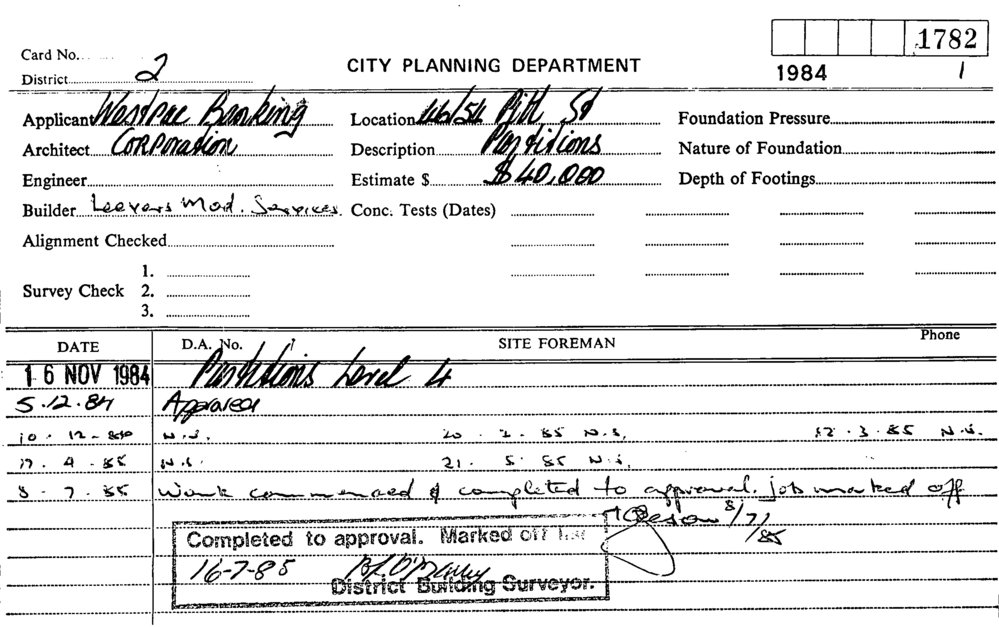 1782
Card No.
District 2
CITY PLANNING DEPARTMENT
1984 1
Applicant Westpac Banking
Location 46/54 Pitt St
Foundation Pressure
Architect Corporation
Description Partitions
Nature of Foundation
Engineer
Estimate $ $40,000
Depth of Footings
Builder Leevers Mod. Services.
Conc. Tests (Dates)
Alignment Checked
1.
Survey Check 2.
3.
DATE D.A. No. SITE FOREMAN Phone
16 NOV 1984 Partitions Level 4
5.12.84 Approved
10.12-84 N.S. 20.2.85 N.S. 12.3.85 N.S.
17.4.85 N.S. 21.5.85 N.S.
8.7.85 Work commenced & completed to approval. job marked off
8/7/85
Completed to approval. Marked off
16-7-85
District Building Surveyor.